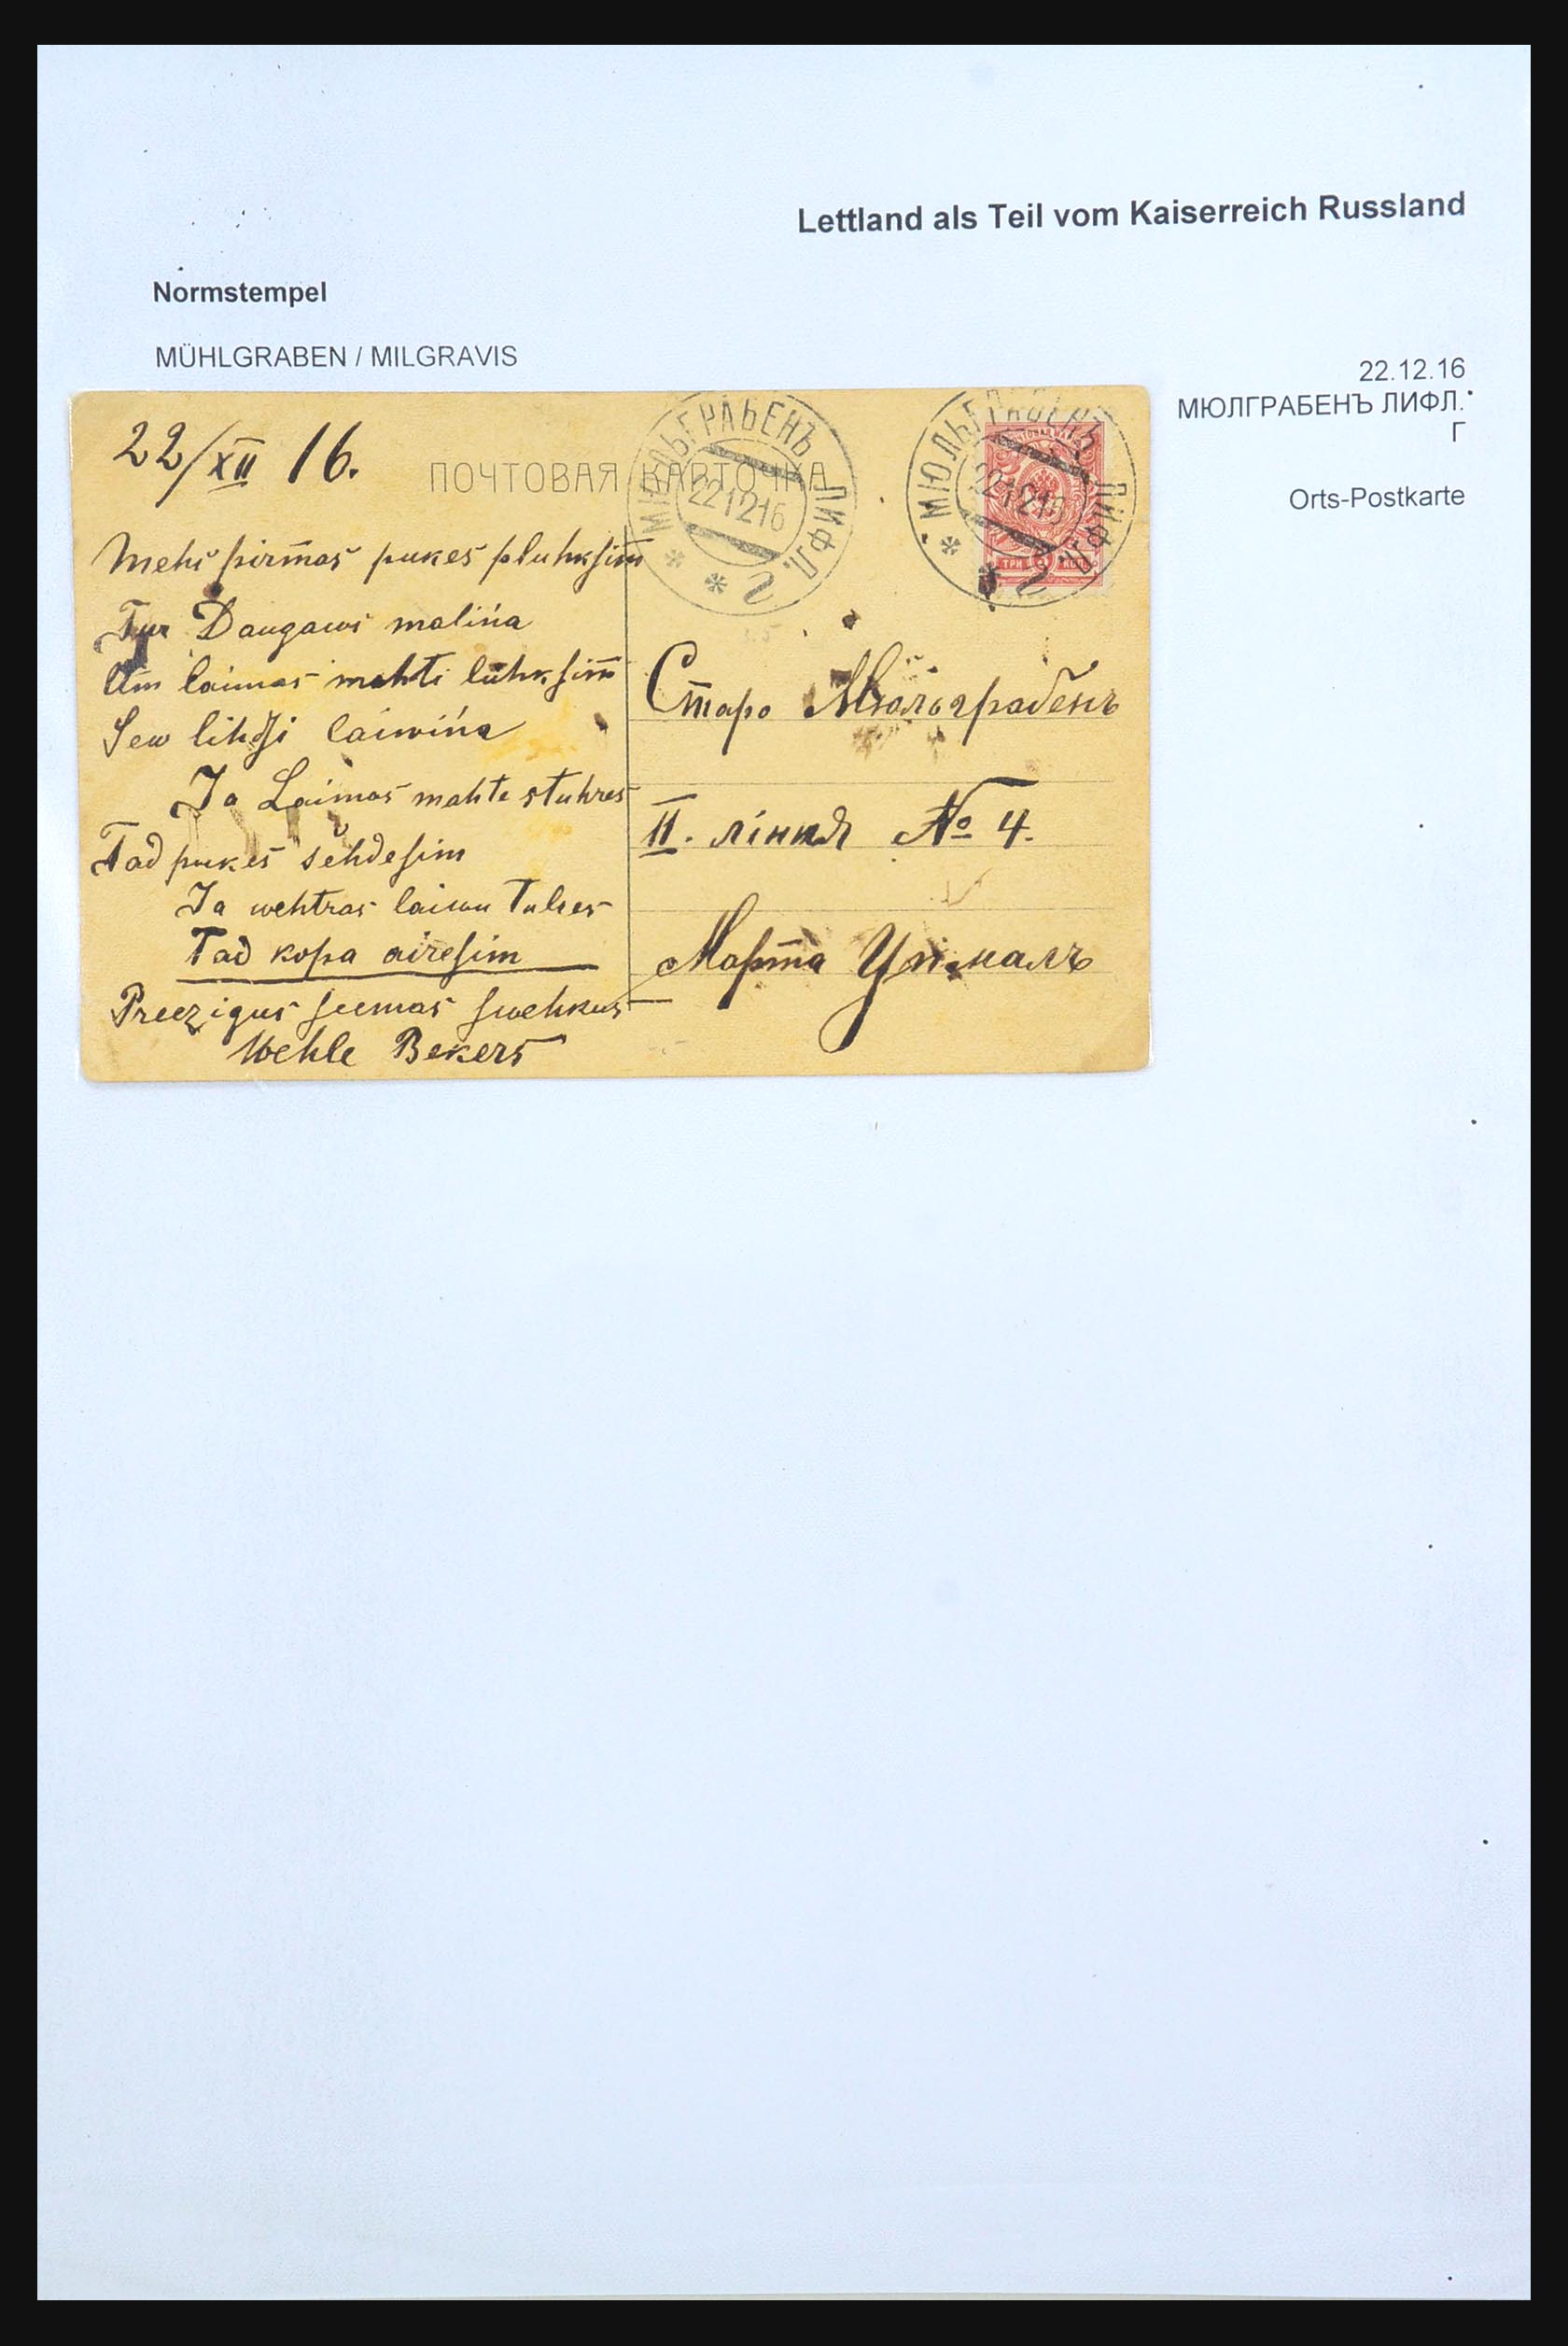 Lettland als Teil vom Kaiserreich Russland
Normstempel
MÜHLGRABEN / MILGRAVIS
22.12.16
МЮЛГРАБЕНЪ ЛИФЛ.
Г
Orts-Postkarte
22/XII 16.
ПОЧТОВАЯ КАРТОЧКА
МЮЛЬГРАБЕНЪ ЛИФЛ.
221216
г
МЮЛЬГРАБЕНЪ ЛИФЛ.
221216
г
ТРИ КОП.
Mehs pirmās pukes pluhksim
Tur Daugaws maliņa
Un laimas mahti luhksim
Sew lihdsi laiwiņa
Ja Laimas mahte stuhres
Tad pukes sehdesim
Ja wehtras laiwu
Tad kopa airesim
Preezigus seemas swehkus
Wehle Bekers
Старо Мюльграбенъ
II. лінія № 4.
Марта